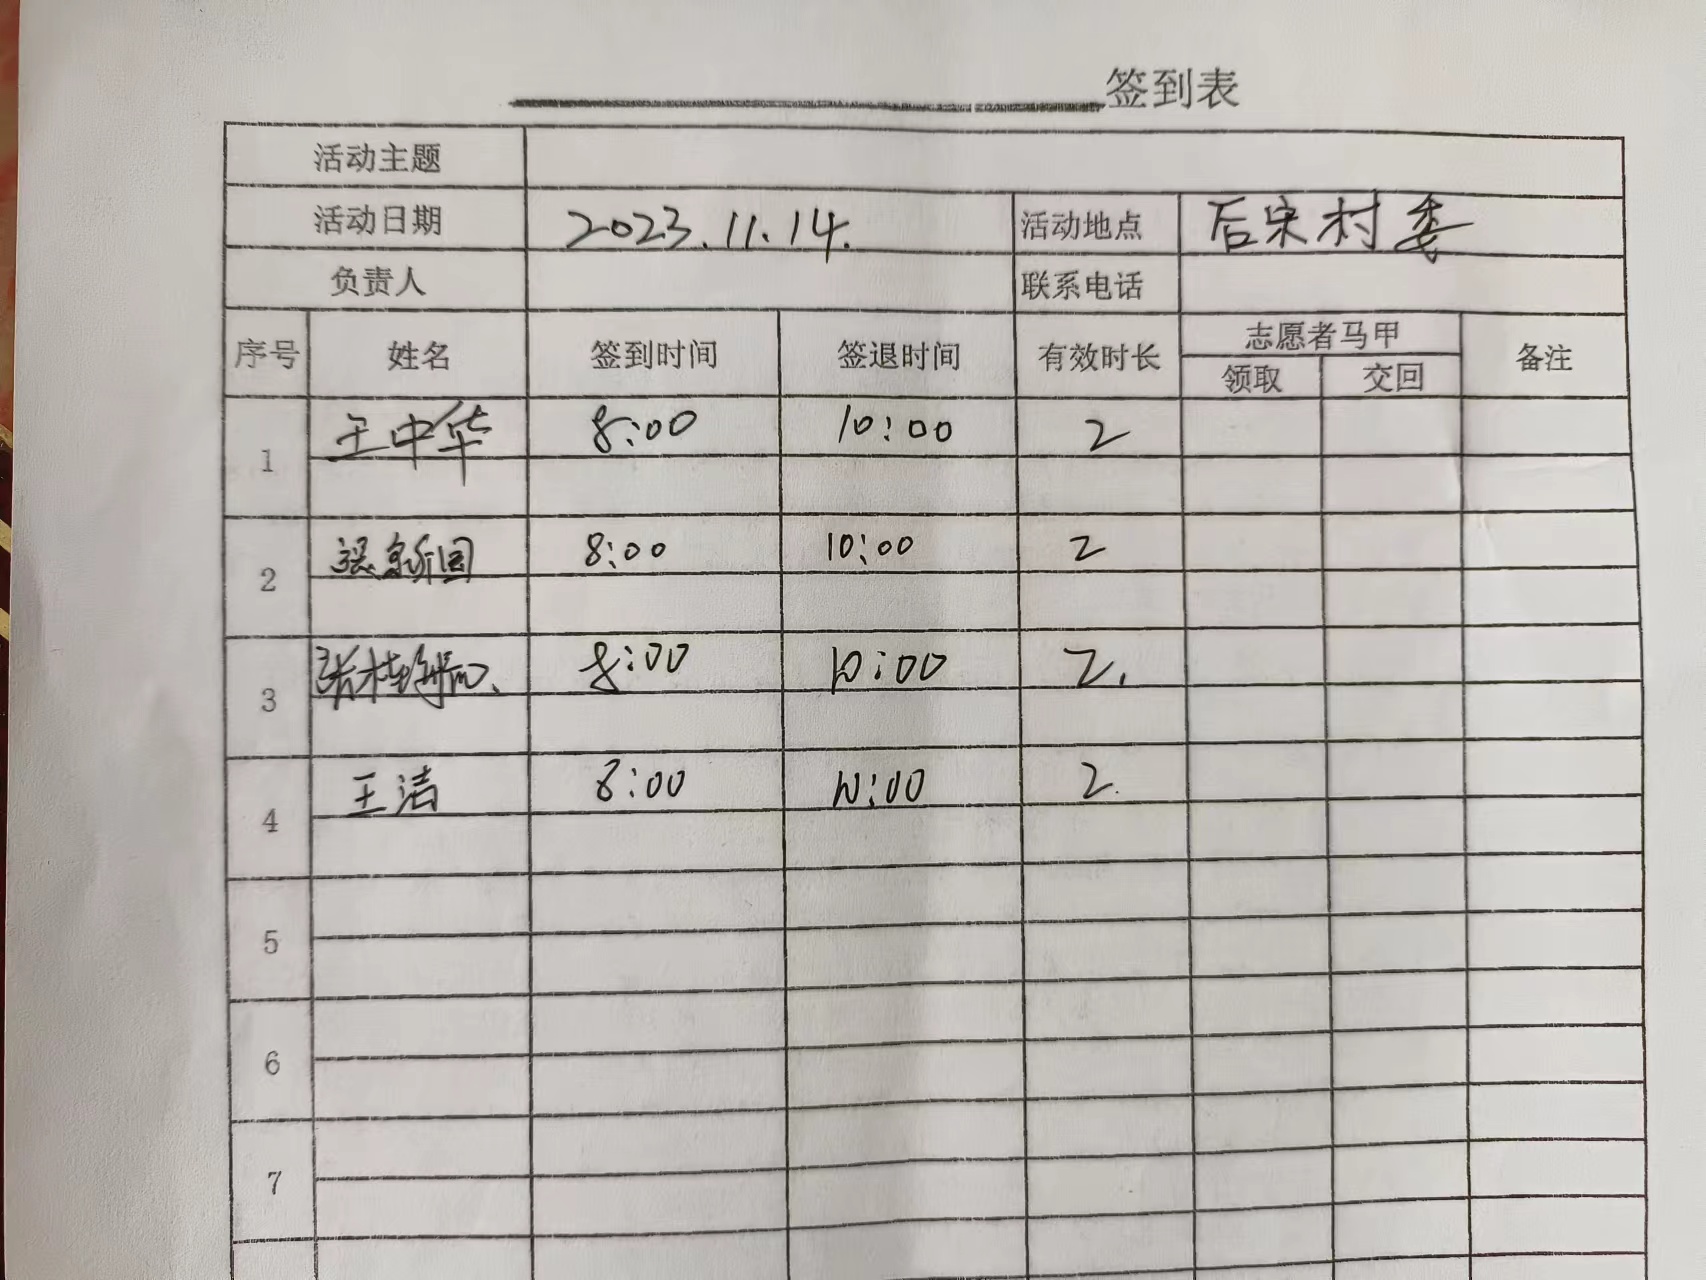 签到表
活动主题
活动日期 2023.11.14. 活动地点 后宋村委
负责人 联系电话
序号 姓名 签到时间 签退时间 有效时长 志愿者马甲 备注
领取 交回
1 王中华 8:00 10:00 2
2 8:00 10:00 2
3 8:00 10:00 2.
4 王洁 8:00 10:00 2.
5
6
7